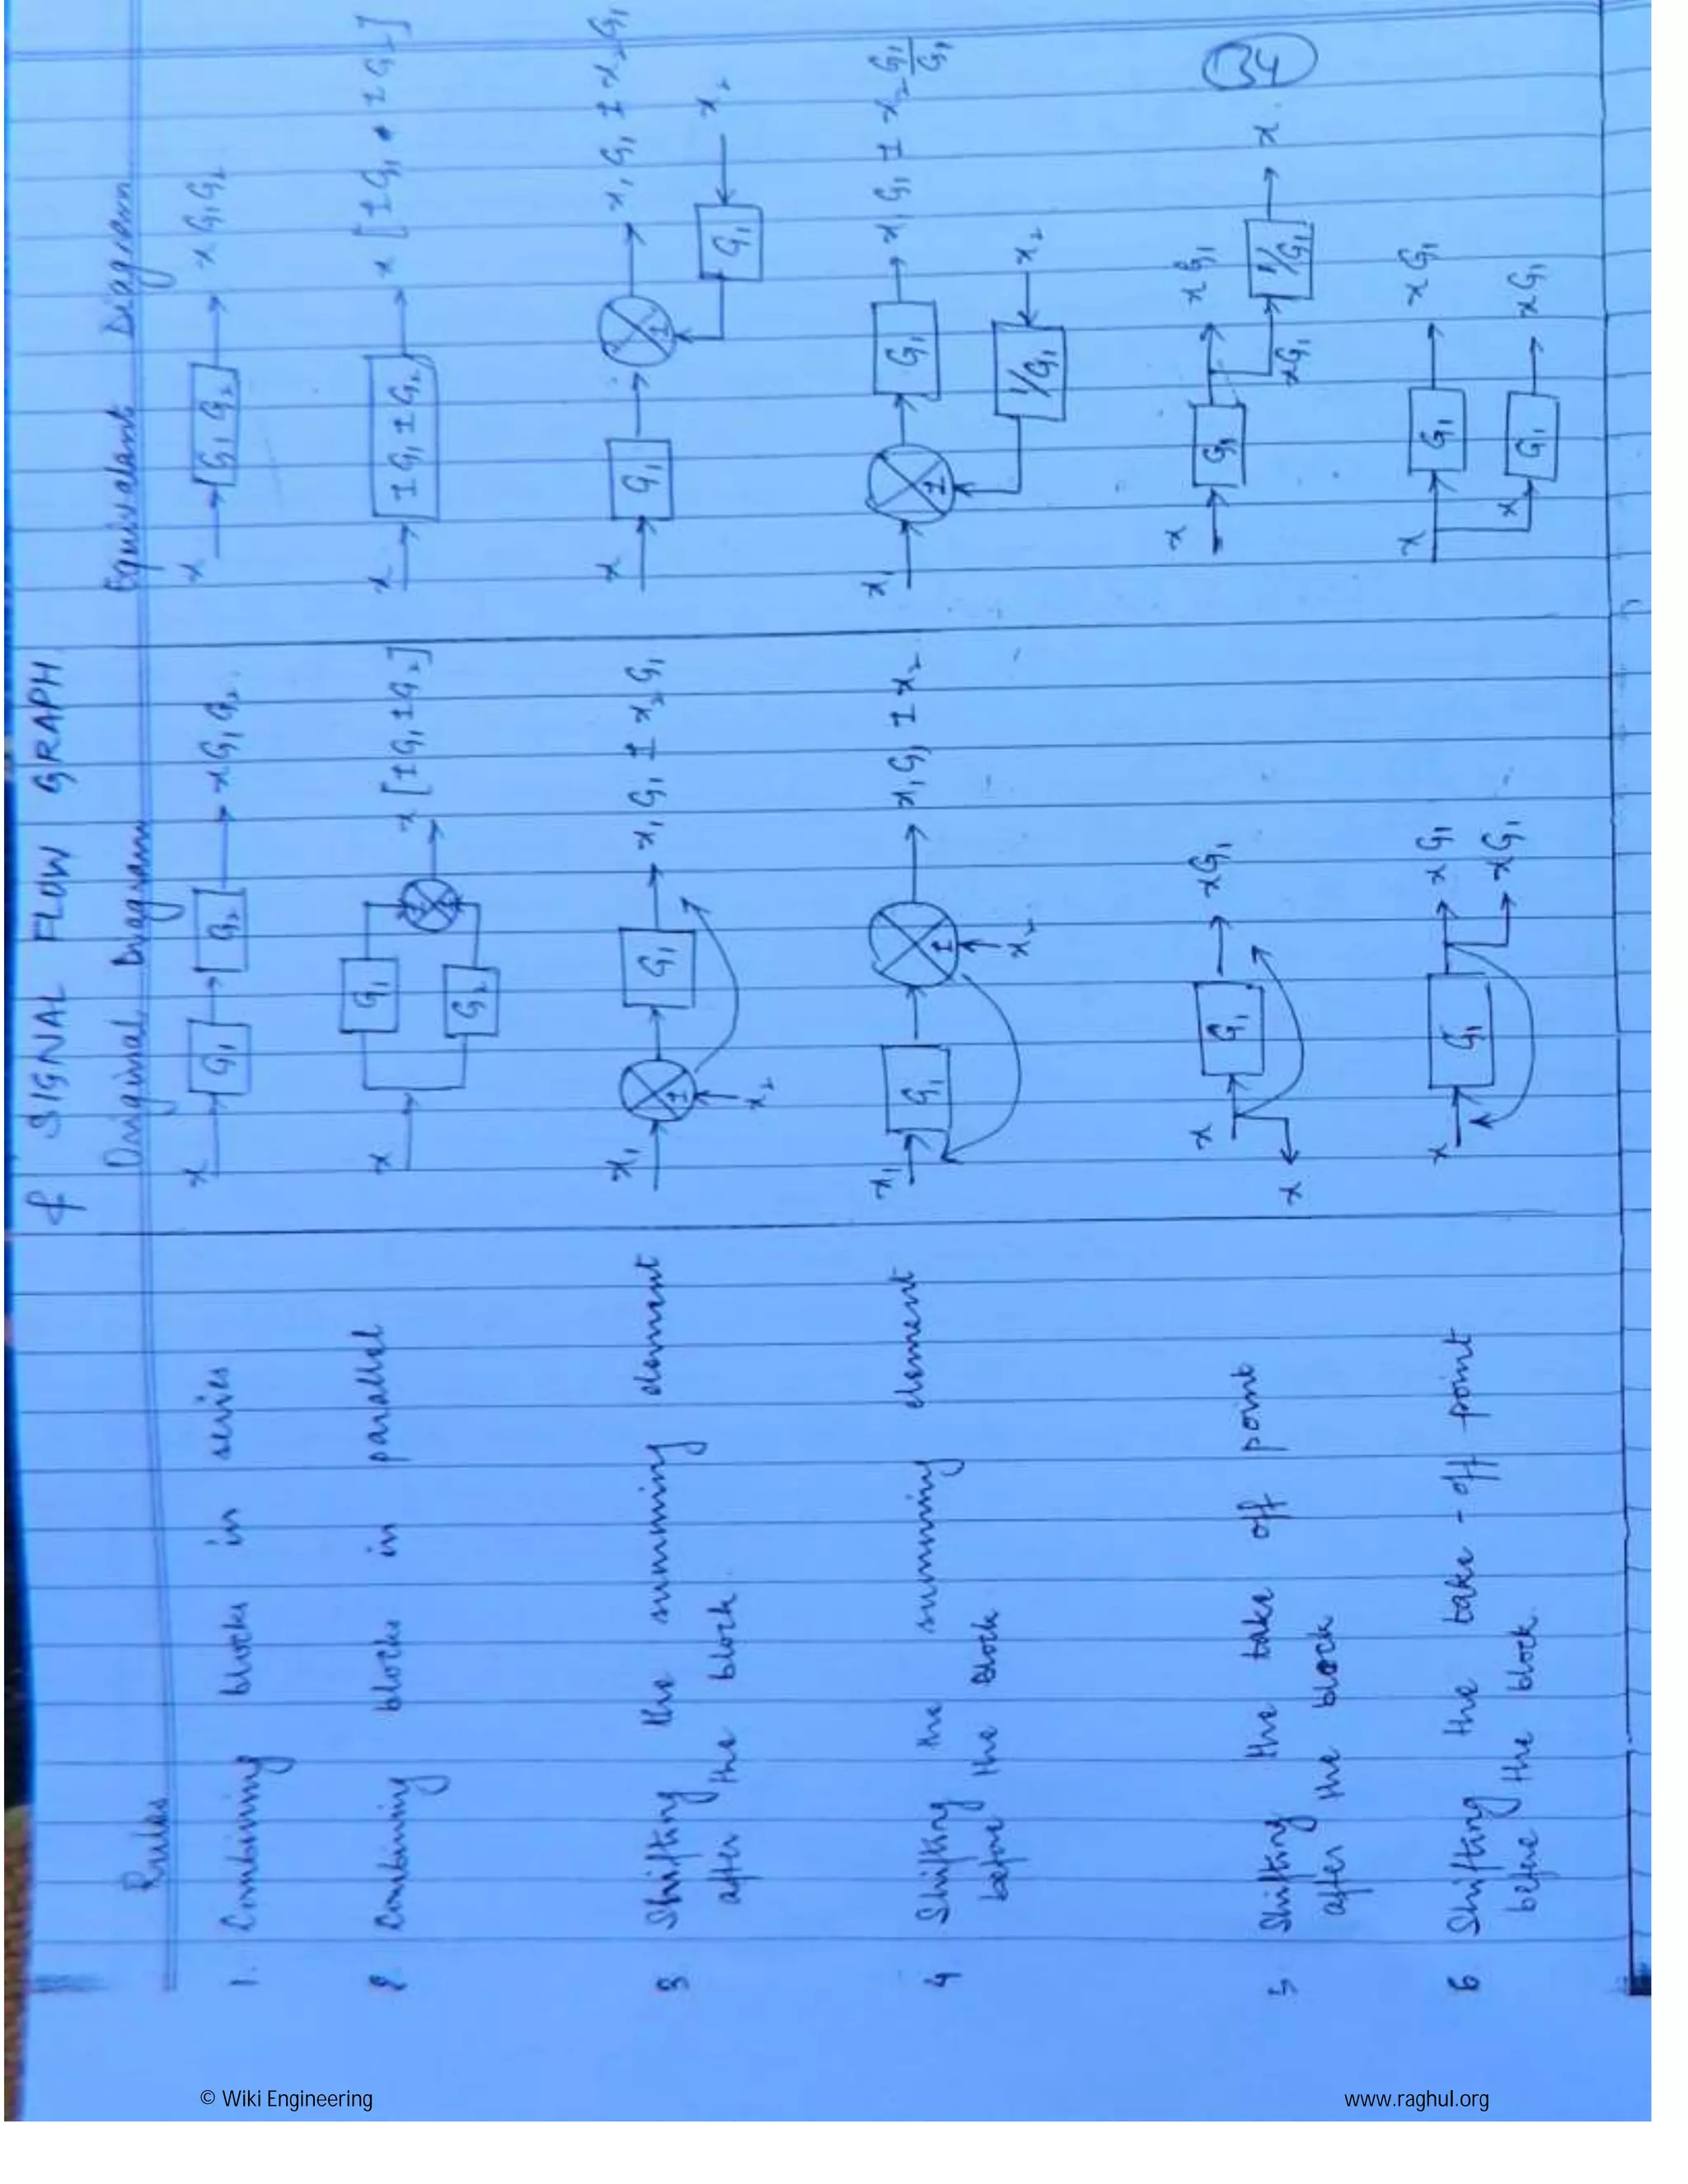 & SIGNAL FLOW GRAPH
Rules
Original Diagram
Equivalent Diagram
1. Combining blocks in series
x G₁ G₂ x G₁ G₂
x G₁ G₂ x G₁ G₂
2 Combining blocks in parallel
x G₁ G₂ x [± G₁ ± G₂]
x ± G₁ ± G₂ x [± G₁ ± G₂]
3 Shifting the summing element
after the block
x₁ ± x₂ G₁ x₁ G₁ ± x₂ G₁
x G₁ ± x₁ G₁ ± x₂ G₁
G₁ x₂
4 Shifting the summing element
before the block
x₁ G₁ ± x₂ x₁ G₁ ± x₂
x₁ ± G₁ x₁ G₁ ± x₂ G₁/G₁
1/G₁ x₂
5 Shifting the take off point
after the block
x G₁ xG₁
x
x G₁ xG₁
xG₁ 1/G₁ x
34
6 Shifting the take-off point
before the block
x G₁ x G₁
xG₁
x G₁ x G₁
x G₁ xG₁
© Wiki Engineering
www.raghul.org